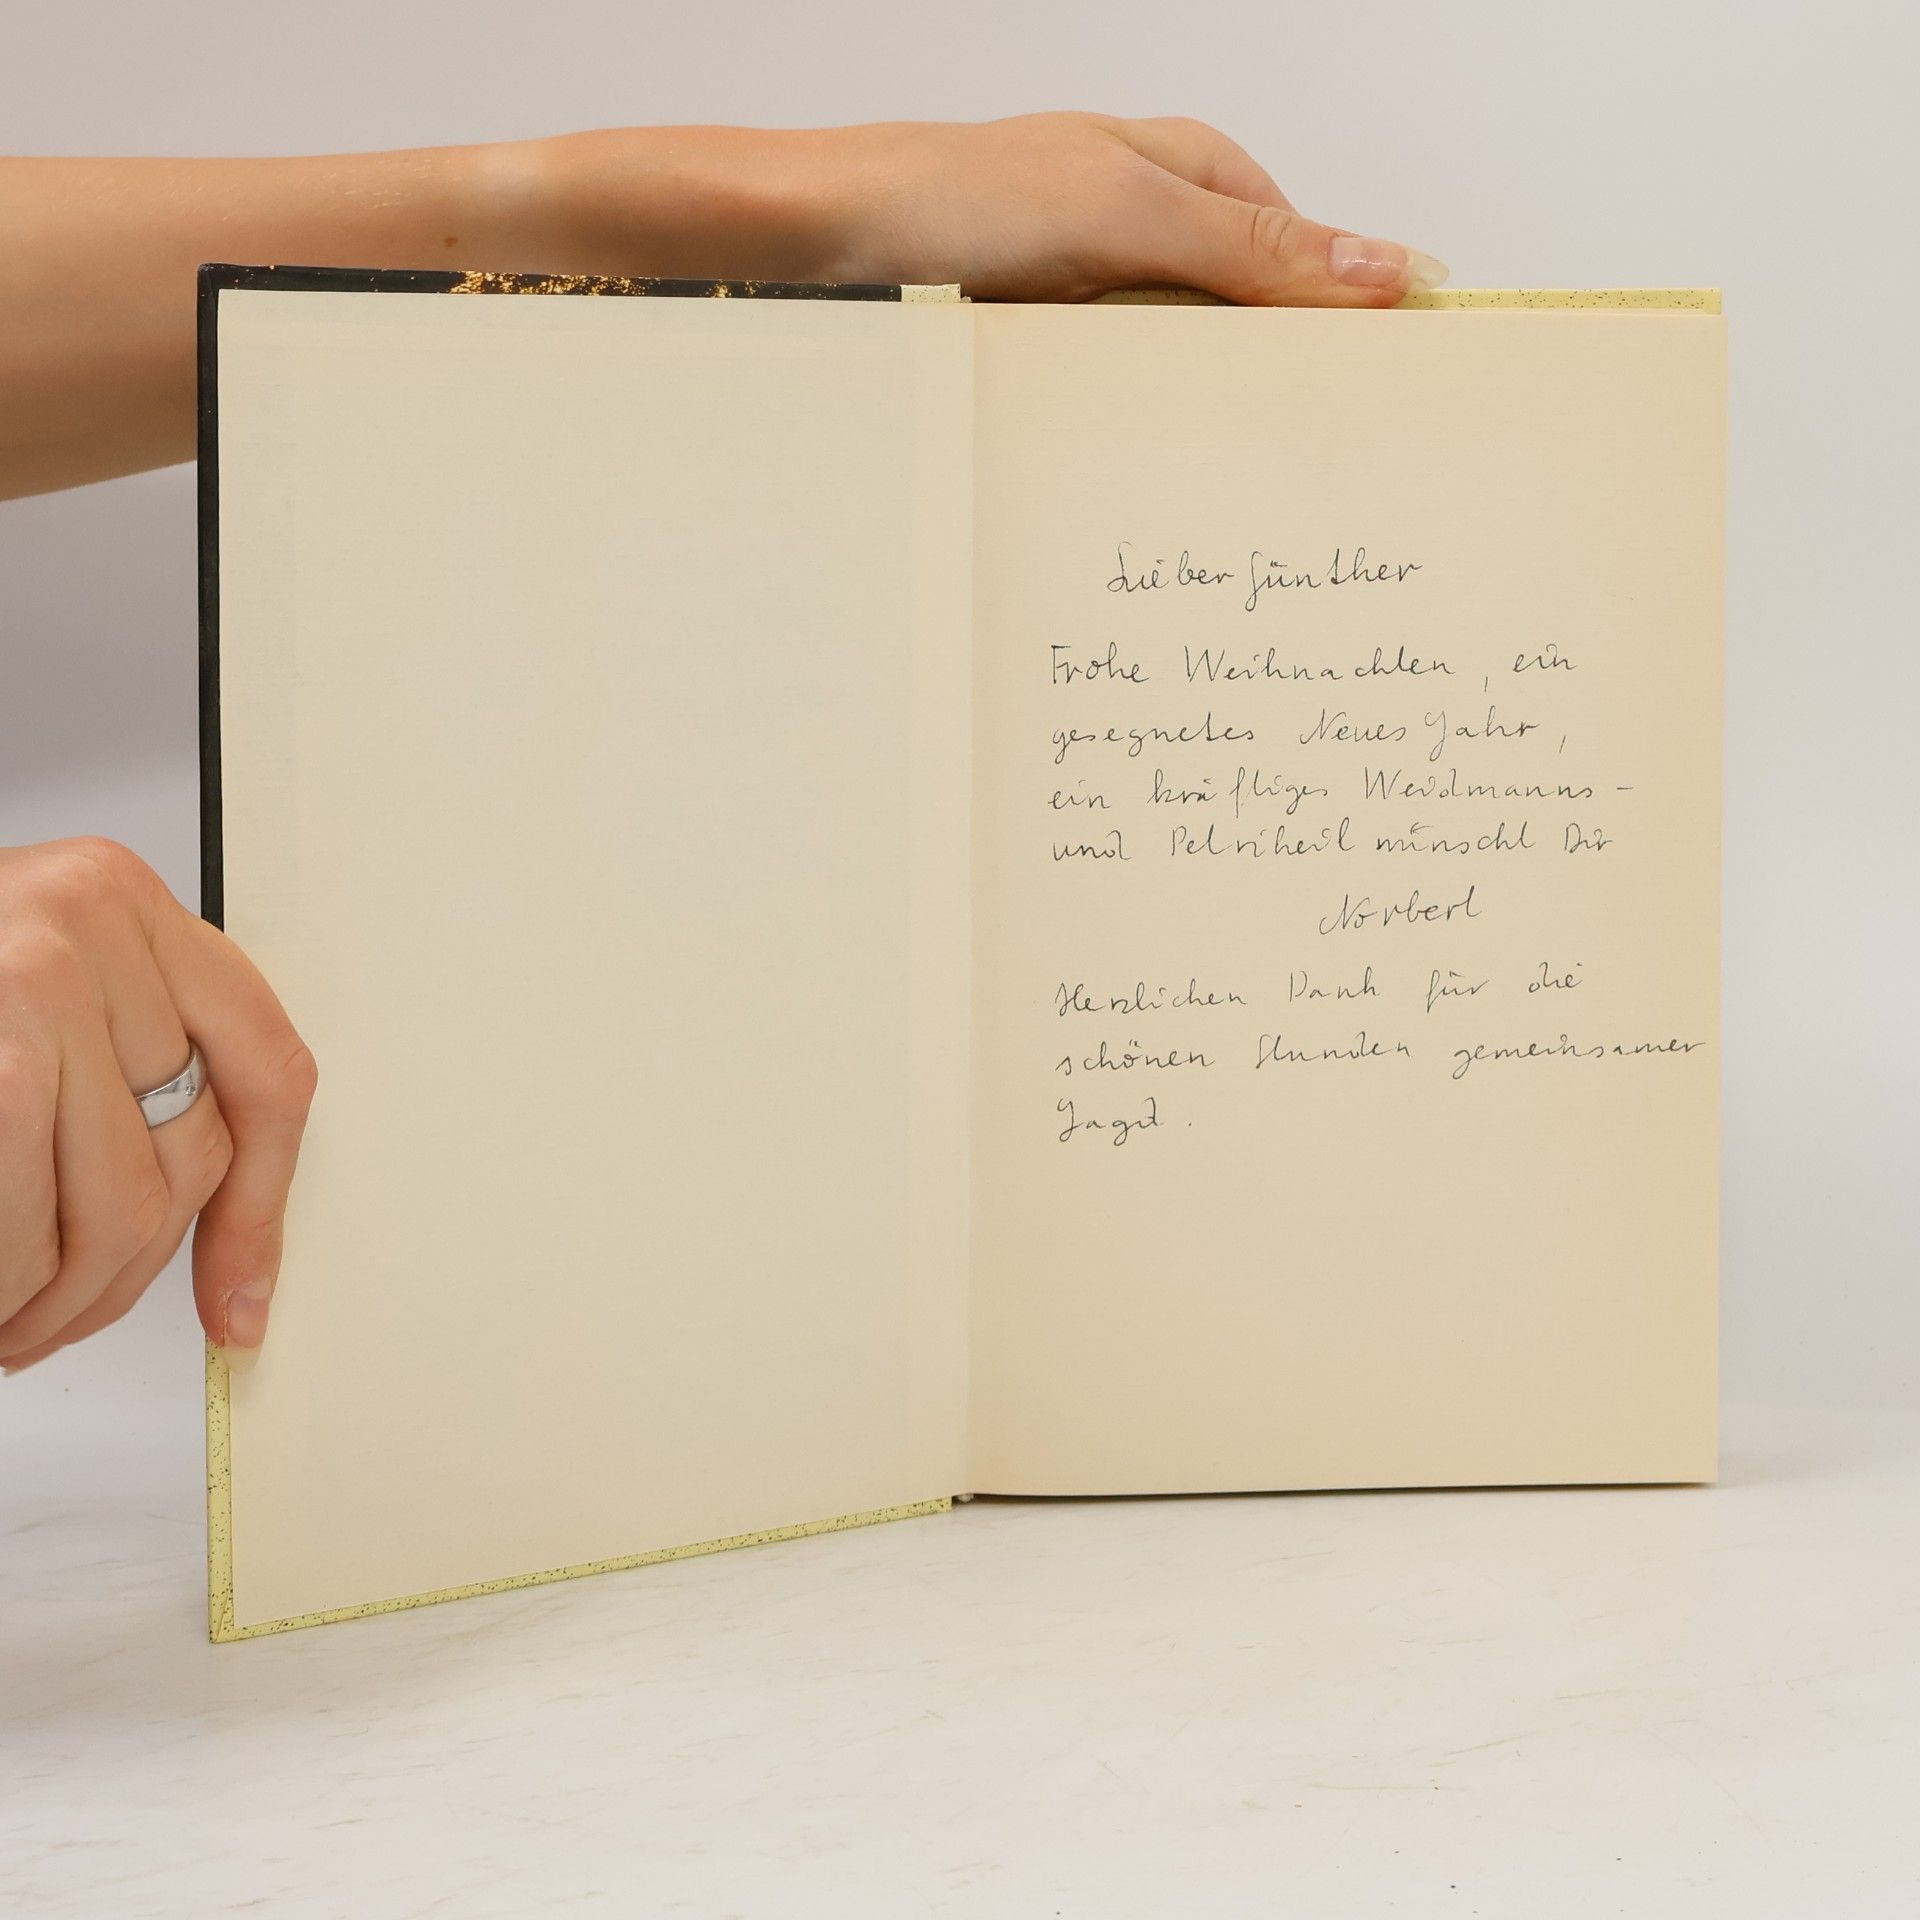 Lieber Günther
Frohe Weihnachten, ein
gesegnetes Neues Jahr,
ein kräftiges Weidmanns-
und Petriheil wünscht Dir
Norbert
Herzlichen Dank für die
schönen Stunden gemeinsamer
Jagd.